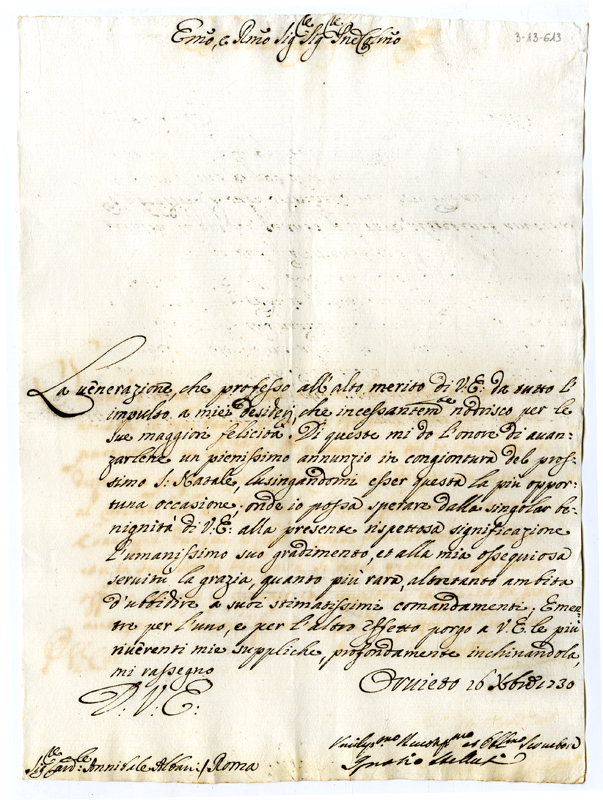 Emo, e Rmo Sigre Sigre Pne Colmo
3-13-613
La venerazione, che professo all'alto merito di V.E: da tutto l'
impulso a miei desiderj, che incessantemte nodrisco per le
sue maggiori felicità. Di queste mi do l'onore di avan-
zarlene un pienissimo annunzio in congiontura del pros-
simo S: Natale, lusingandomi esser questa la più oppor-
tuna occasione, onde io possa sperare dalla singolar be-
nignità di V.E: alla presente rispettosa significazione
l'umanissimo suo gradimento, et alla mia ossequiosa
servitù la grazia, quanto più rara, altretanto ambita
d'ubbidire a suoi stimatissimi comandamenti; E men-
tre per l'uno, e per l'altro effetto porgo a V.E. le più
riverenti mie suppliche, profondamente inchinandola,
mi rassegno
D: V: E:
Orvieto 16 Xbre 1730
Sigre Cardle Annibale Albani / Roma
Ignatio